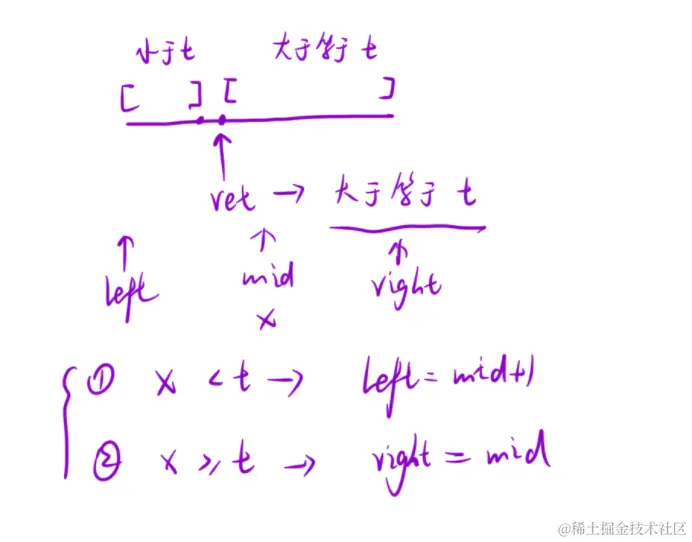 小于t 大于等于 t
[ ] [ ]
ret → 大于等于 t
left mid right
x
① x < t → left = mid+1
② x ≥ t → right = mid
@稀土掘金技术社区